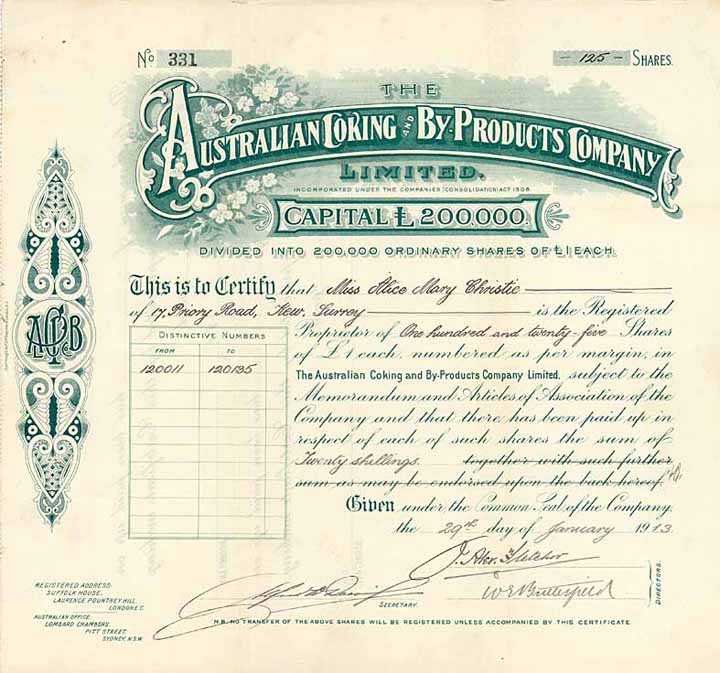 No 331 - 125 - SHARES.
THE
AUSTRALIAN COKING AND BY-PRODUCTS COMPANY
LIMITED.
INCORPORATED UNDER THE COMPANIES (CONSOLIDATION) ACT 1908.
CAPITAL £200.000.
DIVIDED INTO 200,000 ORDINARY SHARES OF £1 EACH.
This is to Certify that Miss Alice Mary Christie
of 17, Priory Road, Kew, Surrey is the Registered
Proprietor of One hundred and twenty-five Shares
of £1 each, numbered as per margin, in
The Australian Coking and By-Products Company Limited, subject to the
Memorandum and Articles of Association of the
Company and that there has been paid up in
respect of each of such shares the sum of
Twenty shillings. together with such further
sum as may be endorsed upon the back hereof.
Given under the Common Seal of the Company,
the 29th day of January 1913.
DISTINCTIVE NUMBERS
FROM TO
120011 120135
DIRECTORS.
SECRETARY.
REGISTERED ADDRESS:
SUFFOLK HOUSE,
LAURENCE POUNTNEY HILL,
LONDON E.C.
AUSTRALIAN OFFICE:
LOMBARD CHAMBERS,
PITT STREET,
SYDNEY, N.S.W.
N.B. NO TRANSFER OF THE ABOVE SHARES WILL BE REGISTERED UNLESS ACCOMPANIED BY THIS CERTIFICATE